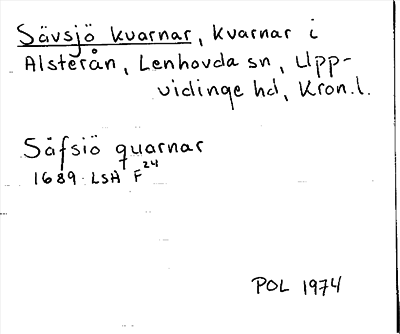 Sävsjö kvarnar, kvarnar i
Alsterån, Lenhovda sn, Upp-
vidinge hd, Kron.l.
Säfsiö quarnar
1689 LSA F24
POL 1974